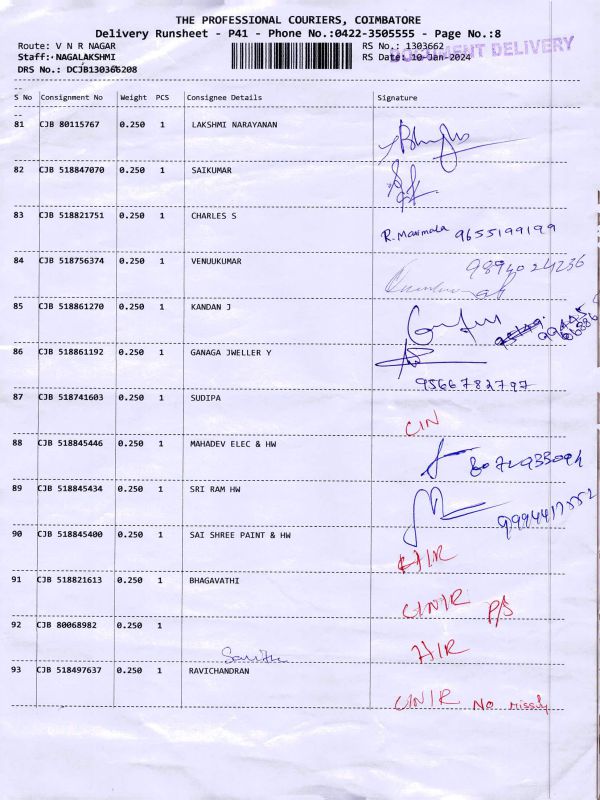 THE PROFESSIONAL COURIERS, COIMBATORE
Delivery Runsheet - P41 - Phone No.:0422-3505555 - Page No.:8
Route: V N R NAGAR RS No.: 1303662
DOCUMENT DELIVERY
Staff: NAGALAKSHMI RS Date: 10-Jan-2024
DRS No.: DCJB130366208
--
S No Consignment No Weight PCS Consignee Details Signature
--
81 CJB 80115767 0.250 1 LAKSHMI NARAYANAN
82 CJB 518847070 0.250 1 SAIKUMAR
83 CJB 518821751 0.250 1 CHARLES S
R. Marimala 9655199199
84 CJB 518756374 0.250 1 VENUUKUMAR
9894024236
85 CJB 518861270 0.250 1 KANDAN J
86 CJB 518861192 0.250 1 GANAGA JWELLER Y
9566782797
87 CJB 518741603 0.250 1 SUDIPA
C/N
88 CJB 518845446 0.250 1 MAHADEV ELEC & HW
89 CJB 518845434 0.250 1 SRI RAM HW
9994417552
90 CJB 518845400 0.250 1 SAI SHREE PAINT & HW
91 CJB 518821613 0.250 1 BHAGAVATHI
CN/R P/S
92 CJB 80068982 0.250 1
A/R
93 CJB 518497637 0.250 1 RAVICHANDRAN
CN/R No missing